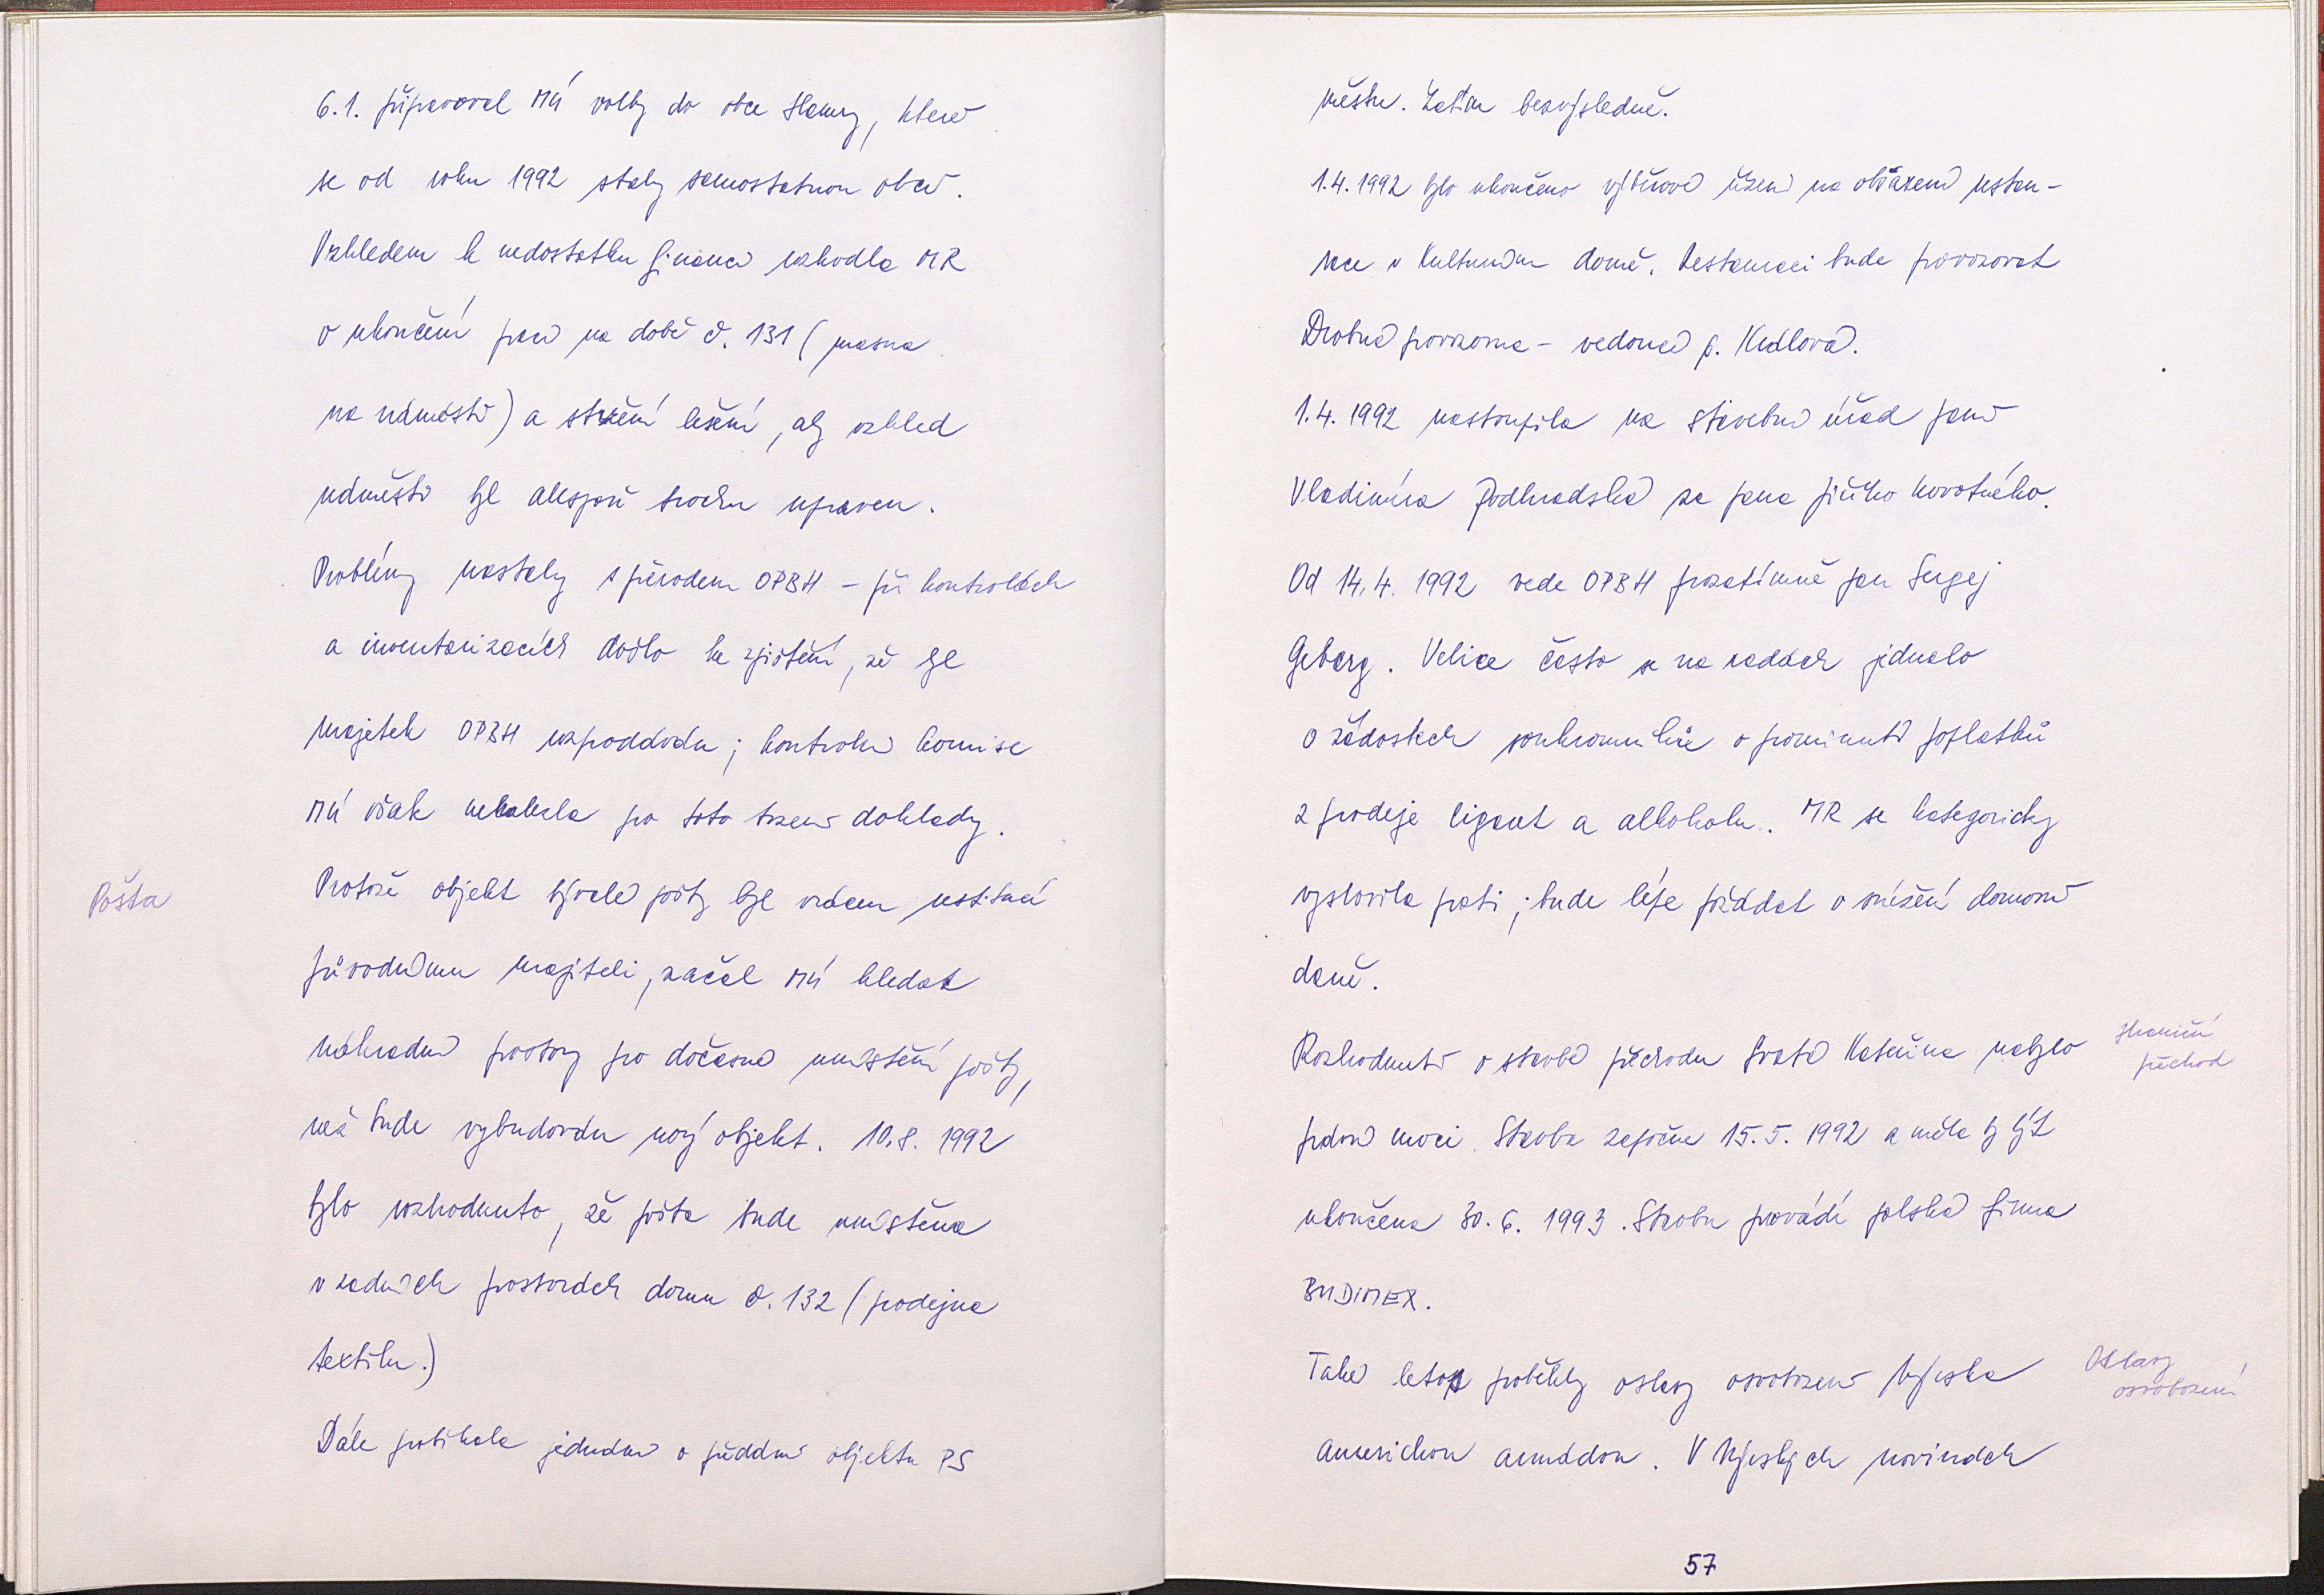 6.1. připravoval MÚ volby do obce Hamry, které
se od roku 1992 staly samostatnou obcí.
Vzhledem k nedostatku financí rozhodla MR
o ukončení prací na době č. 131 (masna
na náměstí) a stržení lešení, aby vzhled
náměstí byl alespoň trochu upraven.
Problémy nastaly s převodem OPBH – při kontrolách
a inventarizacích došlo ke zjištění, že byl
majetek OPBH rozprodán; kontrolní komise
MÚ však nezískala pro toto tvrzení doklady.
Pošta
Protože objekt bývalé pošty byl vrácen restitucí
původnímu majiteli, začal MÚ hledat
náhradní prostory pro dočasné umístění pošty,
než bude vybudován nový objekt. 10.8. 1992
bylo rozhodnuto, že pošta bude umístěna
v zadních prostorách domu č. 132 (prodejna
textilu.)
Dále probíhala jednání o předání objektu PS
městu. Zatím bezvýsledně.
1.4.1992 bylo ukončeno výběrové řízení na obsazení restau-
race v Kulturním domě. Restauraci bude provozovat
Drobná provozovna – vedoucí p. Kudlová.
1.4.1992 nastoupila na stavební úřad paní
Vladimíra Podhradská za pana Jiřího Novotného.
Od 14.4. 1992 vede OPBH prozatímně pan Sergej
Gebarg. Velice často se na radách jednalo
o žádostech soukromníků o prominutí poplatků
z prodeje cigaret a alkoholu. MR se kategoricky
vyslovila proti; bude lépe požádat o snížení domovní
daně.
Hraniční
přechod
Rozhodnutí o stavbě přechodu Svatá Kateřina nabylo
právní moci. Stavba započne 15.5. 1992 a měla by být
ukončena 30.6. 1993. Stavbu provádí polská firma
BUDIMEX.
Oslavy
osvobození
Také letos proběhly oslavy osvobození Nýrska
americkou armádou. V Nýrských novinách
57